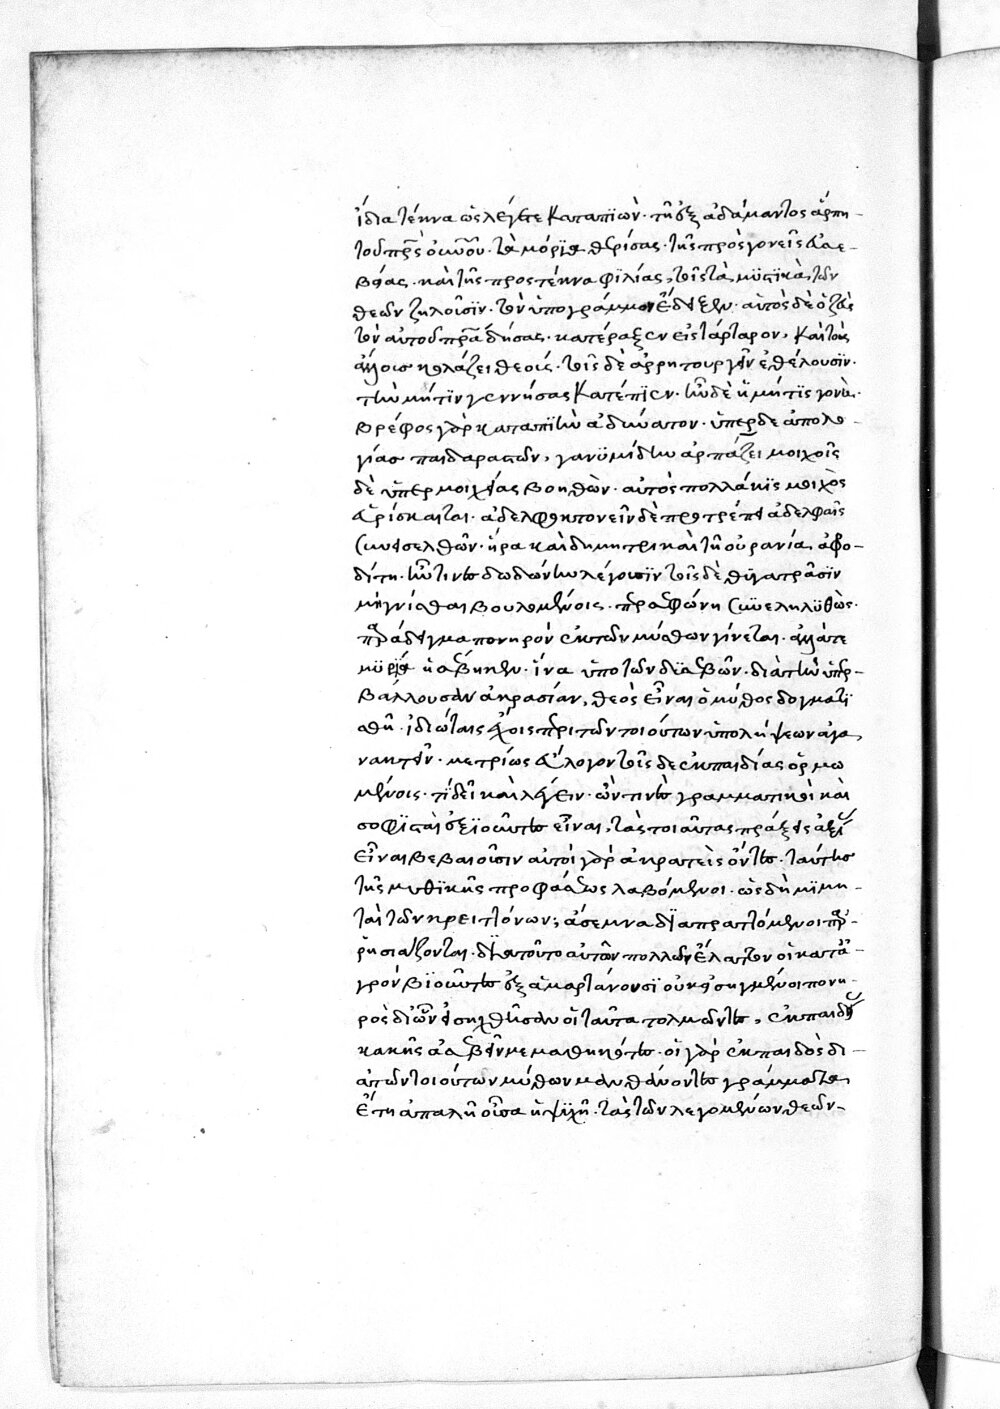 ἴδια τέκνα ὡς λέγεται καταπιὼν· τῆ ἐξ ἀδάμαντος ἅρπη
τοῦ πρς ὀυνοῦ· τὰ μόρια θερίσας· τῆς πρὸς γονεῖς εὐσε-
βείας· καὶ τῆς προς τέκνα φιλίας, τοῖς τὰ μυστικὰ τῶν
θεῶν ζηλοῦσιν· τὸν ὑπογραμμὸν ἔδειξεν· αὐτὸς δὲ ὁ ζεὺς
τὸν αὐτοῦ πρα δήσας· κατέραξεν εἰς τάρταρον, καὶ τοὺς
ἄλλους κολάζει θεούς· τοῖς δὲ ἀρρητουργεῖν ἐθέλουσιν·
τὴν μῆτιν γεννήσας κατέπιεν· ἦν δὲ ἡ μῆτις γονὴ·
βρέφος γὰρ καταπιεῖν ἀδύνατον· ὑπερ δε ἀπολο-
γίας παιδεραστῶν, γανυμίδην ἁρπάζει μοιχοῖς
δὲ ὑπερ μοιχείας βοηθῶν· αὐτὸς πολλάκις μοιχὸς
εὑρίσκεται· ἀδελφοκτονεῖν δὲ προτρέπει ἀδελφαῖς
συνεισελθὼν· ἥρα καὶ δημητρι καὶ τῆ οὐρανία ἀφρο-
δίτη· ἥν τινες δωδώνην λέγουσιν τοῖς δὲ θυγατράσιν
μίγνυσθαι βουλομένοις· περσεφώνη συνεληλυθὼς·
παράδειγμα πονηρὸν ἐκ τῶν μύθων γίνεται· ἄλλα τε
μυρία ἠσέβηκεν· ἵνα ὑπο τῶν δυσσεβῶν· διὰ τὴν ὑπερ-
βάλλουσαν ἀκρασίαν, θεὸς εἶναι ὁ μύθος δογματι
σθῆ· ἰδιώταις ἀνοις περι τῶν τοιούτων ὑπολήψεων ἀγα
νακτεῖν· μετρίως εὔλογον τοῖς δε ἐκ παιδίας ὁρμω
μένοις· τί δεῖ καὶ λέγειν· ὧν τινες γραμματικοὶ καὶ
σοφισταὶ ἐξιοῦντες εἶναι, τὰς τοιαύτας πράξεις ἀξίας
εἶναι βεβαιοῦσιν αὐτοὶ γὰρ ἀκρατεῖς ὄντες· ταύτης
τῆς μυθικῆς προφάσεως λαβόμενοι· ὡς δὴ μιμη-
ταὶ τῶν κρειττόνων; ἄσεμνα διαπραττόμενοι παρ-
ρησιάζονται· διὰ τοῦτο αὐτῶν πολλῶν ἔλαττον οἱ κατ ἀ-
γρὸν βιοῦντες ἐξαμαρτάνουσι οὐκ εἰσηγμένοι πονη-
ρὸς δι ὧν εἰσηχθησαν οἱ ταῦτα τολμῶντες, ἐκ παιδείας
κακῆς ἀσεβεῖν μεμαθηκότες· οἱ γὰρ ἐκ παιδὸς δι-
ὰ τῶν τοιούτων μύθων μανθάνοντες γράμματα
ἔτι ἁπαλῆ οὖσα ἡ ψυχῆ· τὰς τῶν λεγομένων θεῶν-